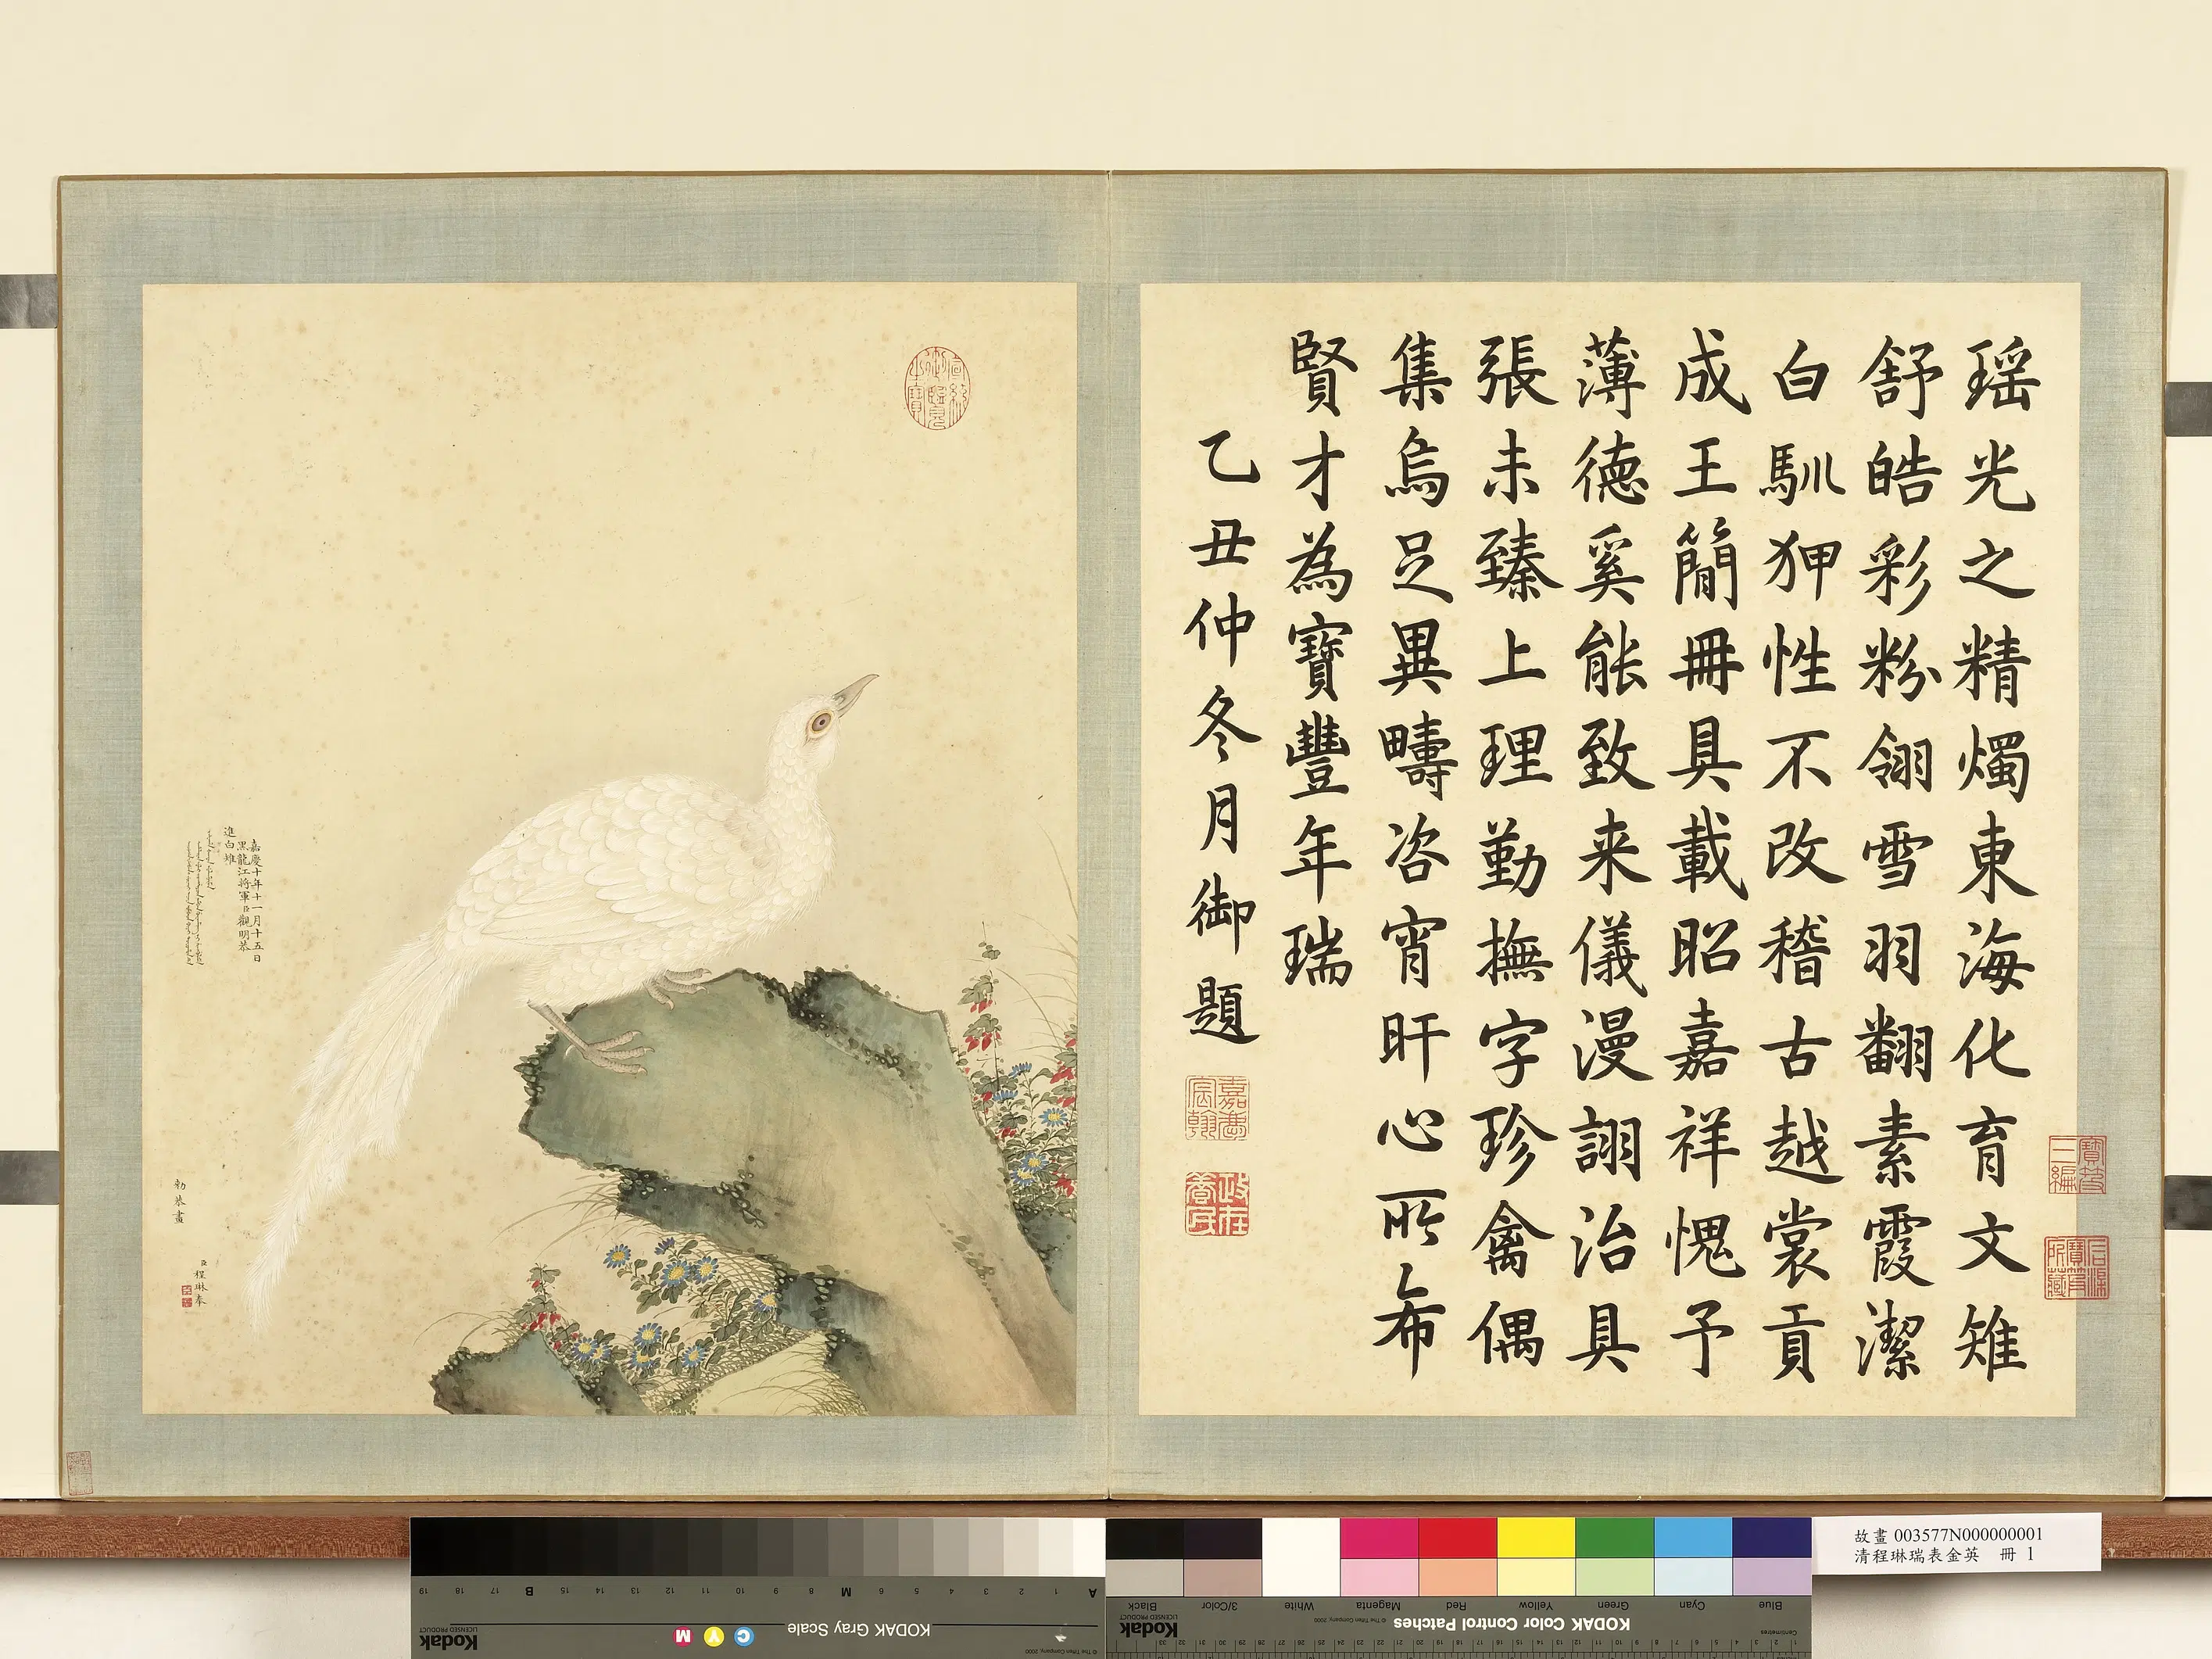 瑶光之精燭東海化育文雉
舒皓彩粉翎雪羽翻素霞潔
白馴狎性不改稽古越裳貢
成王簡冊具載昭嘉祥愧予
薄德奚能致来儀漫詡治具
張未臻上理勤撫字珍禽偶
集烏足異疇咨宵旰心所希
賢才為寶豐年瑞
乙丑仲冬月御題
嘉慶宸翰
寶笈三編
嘉慶十年十一月十五日
黑龍江將軍臣觀明恭
進白雉
臣程琳奉
勅恭畫
故畫 003577N000000001
清程琳瑞表金英 冊 1
KODAK Gray Scale
Kodak
LICENSED PRODUCT
C Y M
A 1 2 3 4 5 6 M 8 9 10 11 12 13 14 15 B 17 18 19
KODAK Color Control Patches
Kodak
LICENSED PRODUCT
Blue Cyan Green Yellow Red Magenta White 3/Color Black
Centimetres
© The Tiffen Company, 2000